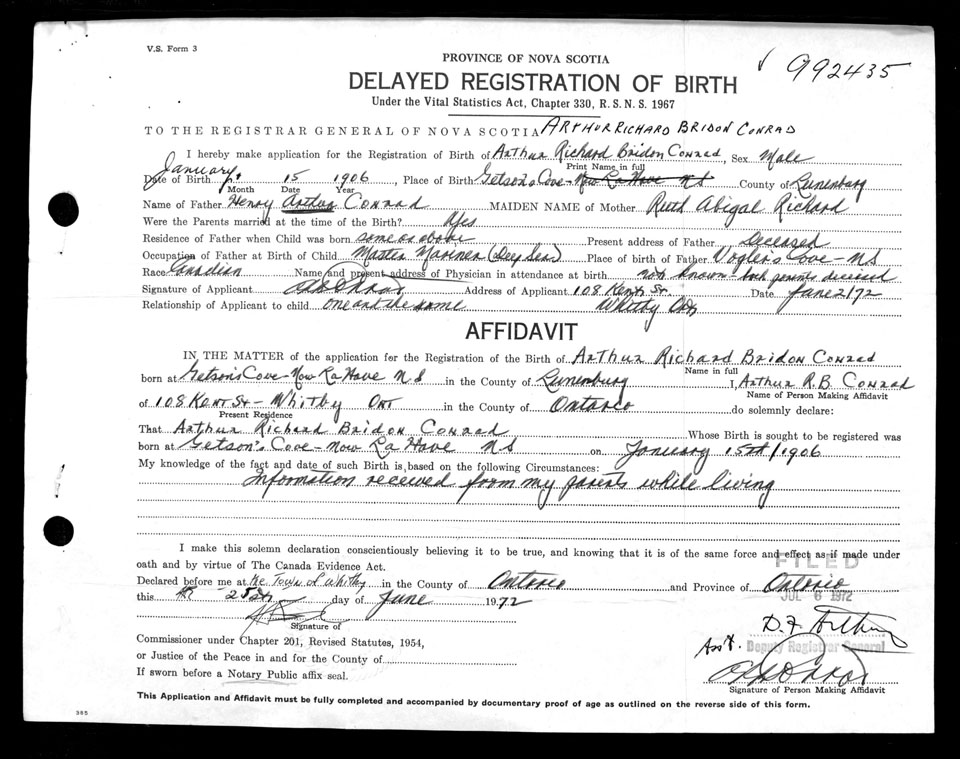 V.S. Form 3
992435
PROVINCE OF NOVA SCOTIA
DELAYED REGISTRATION OF BIRTH
Under the Vital Statistics Act, Chapter 330, R.S.N.S. 1967
TO THE REGISTRAR GENERAL OF NOVA SCOTIA ARTHUR RICHARD BRIDON CONRAD
I hereby make application for the Registration of Birth of Arthur Richard Bridon Conrad, Sex Male
Print Name in full
January
Date of Birth 15 1906, Place of Birth Getson's Cove - Now La Have NS County of Lunenburg
Month Date Year
Name of Father Henry Arthur Conrad MAIDEN NAME of Mother Ruth Abigal Richard
Were the Parents married at the time of the Birth? Yes
Residence of Father when Child was born same as above Present address of Father Deceased
Occupation of Father at Birth of Child Master Mariner (Deep Sea) Place of birth of Father Vogler's Cove - NS
Race Canadian Name and present address of Physician in attendance at birth not known - both parents deceased
Signature of Applicant Address of Applicant 108 Kent St. Date June 2/72
Relationship of Applicant to child one and the same Whitby Ont
AFFIDAVIT
IN THE MATTER of the application for the Registration of the Birth of Arthur Richard Bridon Conrad
Name in full
born at Getson's Cove - Now La Have NS in the County of Lunenburg I, Arthur R.B. Conrad
Name of Person Making Affidavit
of 108 Kent St - Whitby Ont in the County of Ontario do solemnly declare:
Present Residence
That Arthur Richard Bridon Conrad Whose Birth is sought to be registered was
born at Getson's Cove - Now La Have NS on January 15th/1906
My knowledge of the fact and date of such Birth is based on the following Circumstances:
Information received form my parents while living
I make this solemn declaration conscientiously believing it to be true, and knowing that it is of the same force and effect as if made under
oath and by virtue of The Canada Evidence Act.
FILED
Declared before me at the Town of Whitby in the County of Ontario and Province of Ontario
JUL 6 1972
this day of June 1972
Signature of
D.F.
Commissioner under Chapter 201, Revised Statutes, 1954,
Ass't. Deputy Registrar General
or Justice of the Peace in and for the County of
If sworn before a Notary Public affix seal.
Signature of Person Making Affidavit
This Application and Affidavit must be fully completed and accompanied by documentary proof of age as outlined on the reverse side of this form.
385